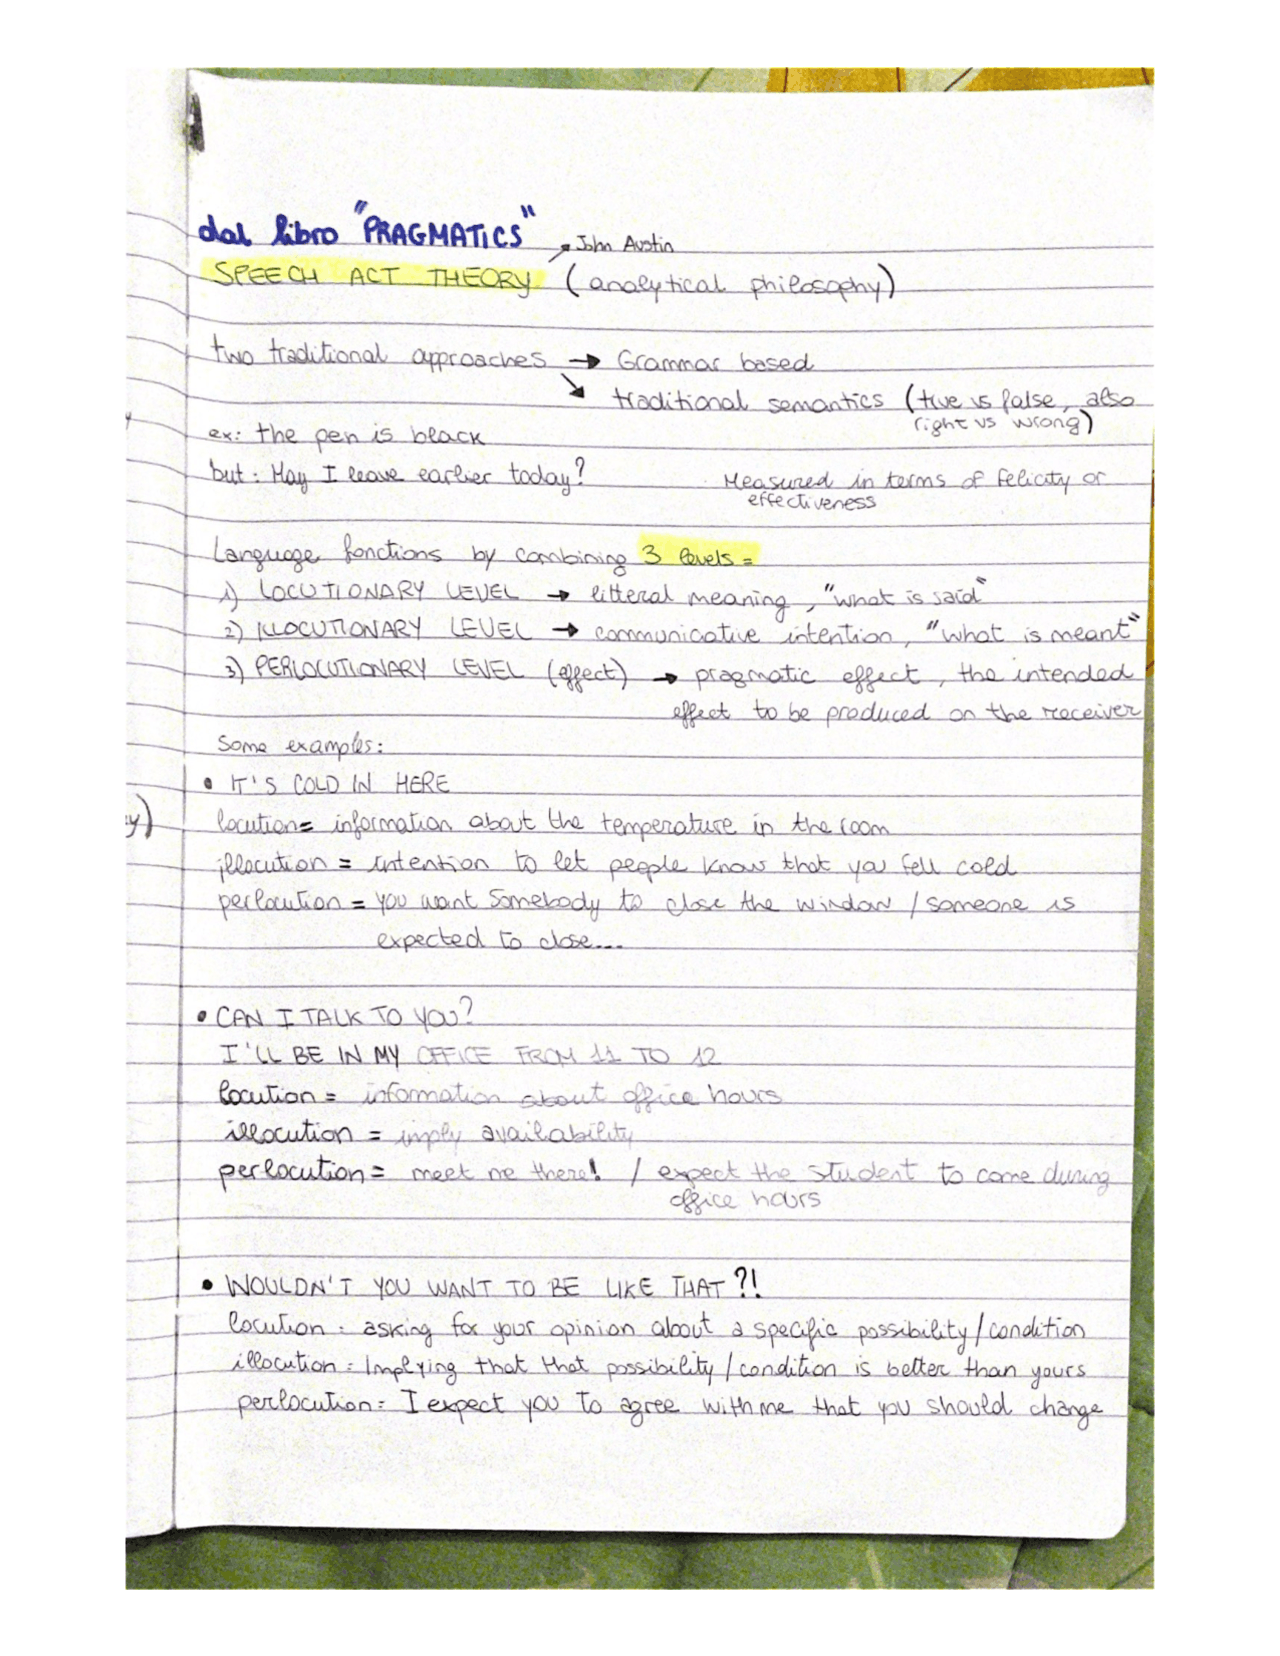 dal libro "PRAGMATICS"
John Austin
SPEECH ACT THEORY (analytical philosophy)
two traditional approaches → Grammar based
↘ traditional semantics (true vs false, also
right vs wrong)
ex: the pen is black
but: May I leave earlier today?
Measured in terms of felicity or
effectiveness
Language fonctions by combining 3 levels =
1) LOCUTIONARY LEVEL → litteral meaning, "what is said"
2) ILLOCUTIONARY LEVEL → communicative intention, "what is meant"
3) PERLOCUTIONARY LEVEL (effect) → pragmatic effect, the intended
effect to be produced on the receiver
Some examples:
• IT'S COLD IN HERE
locution = information about the temperature in the room
illocution = intention to let people know that you fell cold
perlocution = you want somebody to close the window / someone is
expected to close...
• CAN I TALK TO YOU?
I'LL BE IN MY OFFICE FROM 11 TO 12
locution = information about office hours
illocution = imply availability
perlocution = meet me there! / expect the student to come during
office hours
• WOULDN'T YOU WANT TO BE LIKE THAT?!
locution: asking for your opinion about a specific possibility/condition
illocution: Implying that that possibility/condition is better than yours
perlocution: I expect you to agree with me that you should change